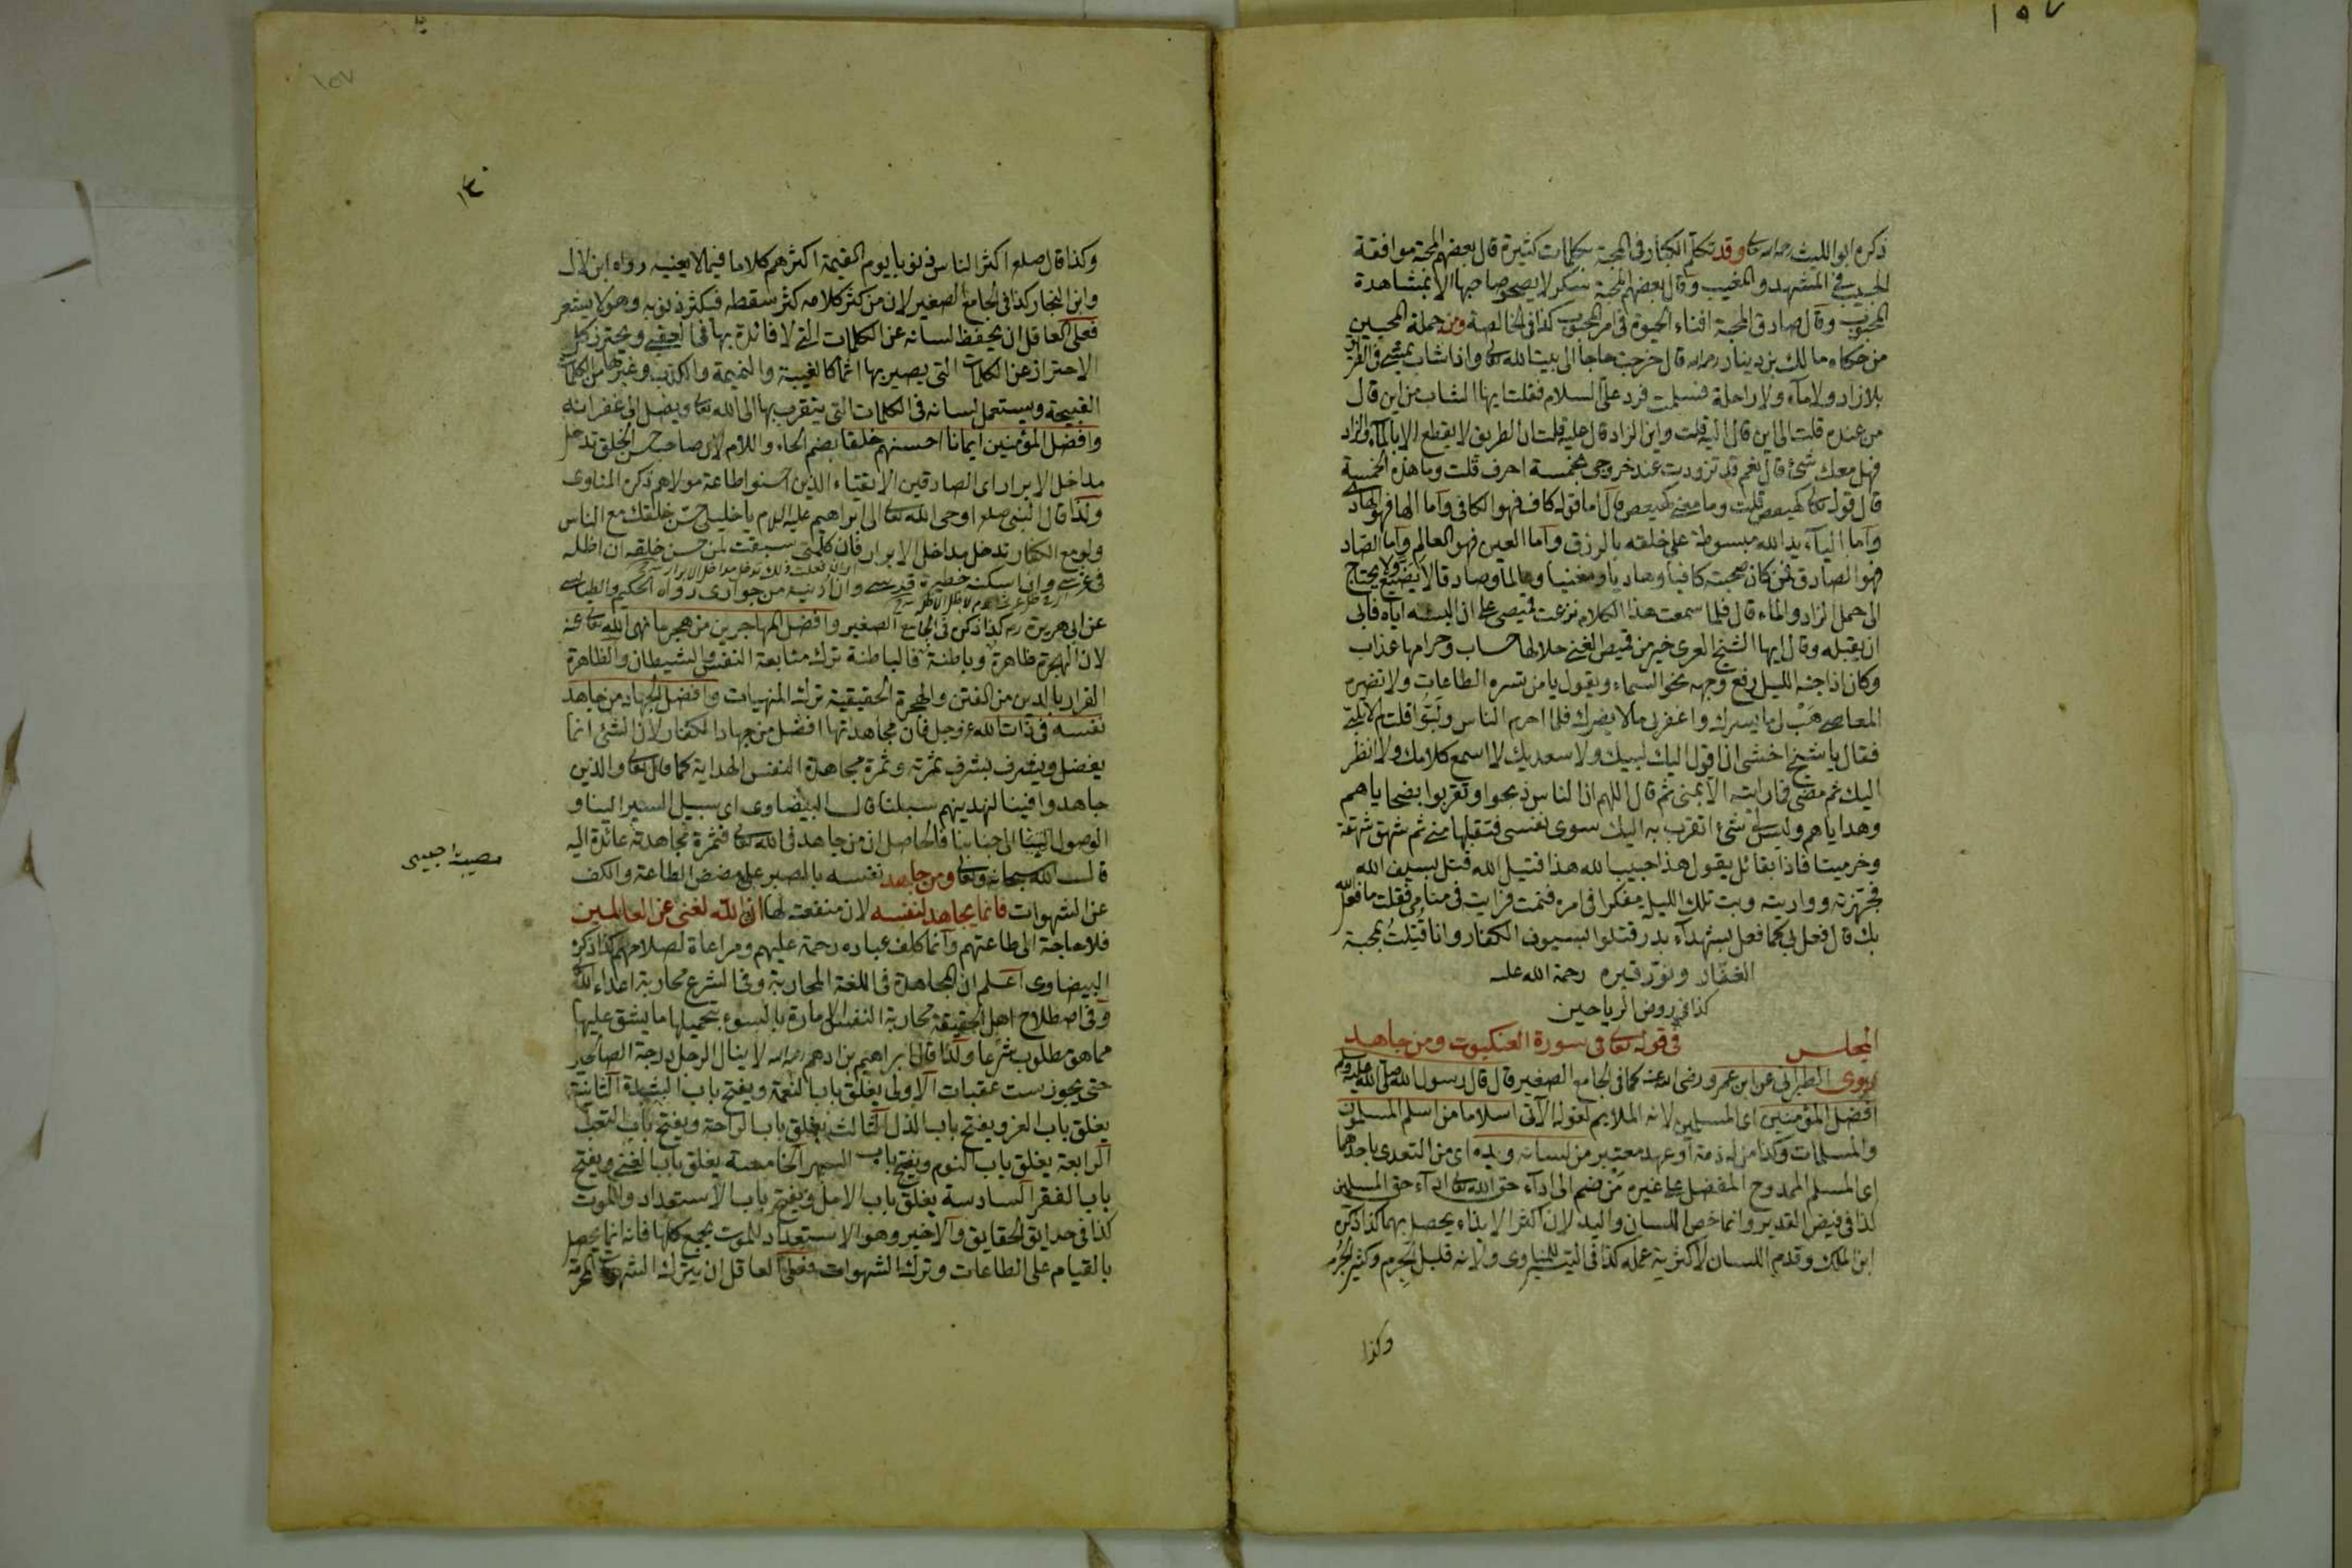 ١٥٧
ذكره ابو الليث رحمه الله تعالى وقد تكلم الكبار فى المحبة بكلمات كثيرة قال بعضهم المحبة موافقة
الحبيب في المشهد والمغيب وقال بعضهم المحبة سكر لا يصحو صاحبها الا بمشاهدة
المحبوب وقال صادق المحبة افناء الحيوة فى امر المحبوب كذا فى الخالصة ومن جملة المحبين
من حكاه مالك بن دينار رحمه الله قال خرجت حاجا الى بيت الله تعالى واذا شاب يمشي فى الطريق
بلا زاد ولا ماء ولا راحلة فسلمت فرد علىّ السلام فقلت ايها الشاب من اين قال
من عنده قلت الى اين قال اليه قلت واين الزاد قال عليه قلت ان الطريق لا يقطع الا بالماء والزاد
فهل معك شئ قال نعم قد تزودت عند خروجى بخمسة احرف قلت وما هذه الخمسة
قال قوله تعالى كهيعص قلت وما معنى كهيعص قال اما قوله كاف فهو الكافى واما الها فهو الهاد
واما الياء يد الله مبسوطة على خلقه بالرزق واما العين فهو العالم واما الصاد
فهو الصادق فمن كان صحبته كافيا وهاديا ومغنيا وعالما وصادقا لا يضيع ولا يحتاج
الى حمل الزاد والماء قال فلما سمعت هذا الكلام نزعت قميصى على ان البسه اياه فابى
ان يقبله وقال ايها الشيخ العرى خير من قميص الغنى حلالها حساب وحرامها عذاب
وكان اذا جنه الليل رفع وجهه نحو السماء ويقول يا من تسره الطاعات ولا تضره
المعاصى هَبْ لى ما يسرك واغفر لى ما لا يضرك فلما احرم الناس ولبّوا قلت لم لا تلبى
فقال يا شيخ اخشى ان اقول لبيك فيقول لا لبيك ولا سعديك لا اسمع كلامك ولا انظر
اليك ثم مضى فما رايته الا بمنى ثم قال اللهم ان الناس ذبحوا وتقربوا بضحاياهم
وهداياهم وليس لى شئ اتقرب به اليك سوى نفسى فتقبلها منى ثم شهق شهقة
وخر ميتا فاذا بقائل يقول هذا حبيب الله هذا قتيل الله قتل بسيف الله
فجهزته وواريته وبت تلك الليلة مفكرا فى امره فنمت فرايت فى منامى فقلت ما فعل الله
بك قال فعل بى كما فعل بشهداء بدر قتلوا بسيوف الكفار وانا قُتِلتُ بمحبة
الغفّار ونوّر قبره رحمة الله عليه
كذا فى روض الرياحين
المجلس فى قوله تعالى فى سورة العنكبوت ومن جاهد
روى الطبرانى عن ابن عمرو رضى الله عنه كما فى الجامع الصغير قال قال رسول الله صلى الله عليه وسلم
افضل المؤمنين اى المسلمين لانه الملايم لقوله الآتى اسلاما من اسلم المسلمون
والمسلمات وكذا من له ذمة او عهد معتبر من لسانه ويده اى من التعدى باحدهما
اى المسلم الممدوح المفضل على غيره مَن ضم الى اداء حق الله تعالى اداء حق المسلمين
كذا فى فيض القدير وانما خص اللسان واليد لان اكثر الايذاء يحصل بهما كذا ذكره
ابن الملك وقدم اللسان لاكثرية عمله كذا فى التيسير للمناوى ولانه قليل الجِرم وكثير الجُرم
وكذا
١٥٧
وكذا قال صلعم اكثر الناس ذنوبا يوم القيمة اكثرهم كلاما فيما لا يعنيه رواه ابن لال
وابن النجار كذا فى الجامع الصغير لان من كثر كلامه كثر سقطه فيكثر ذنوبه وهو لا يشعر
فعلى العاقل ان يحفظ لسانه عن الكلمات التى لا فائدة بها فى العقبى ويحترز كل
الاحتراز عن الكلمات التى يصير بها آثما كالغيبة والنميمة والكذب وغيرها من الكلمات
القبيحة ويستعمل لسانه فى الكلمات التى يتقرب بها الى الله تعالى ويصل الى غفرانه
وافضل المؤمنين ايمانا احسنهم خلقا بضم الخاء واللام لان صاحب حسن الخلق تدخل
مداخل الابرار اى الصادقين الاتقياء الذين احسنوا طاعة مولاهم ذكره المناوى
ولذا قال النبى صلعم اوحى الله تعالى الى ابراهيم عليه السلام يا خليلى حسّن خلقك مع الناس
ولو مع الكفار تدخل مداخل الابرار فان كلمتى سبقت لمن حسن خلقه ان اظله
فى عرشى وان اسكنه حظيرة قدسى وان ادنيه من جوارى رواه الحكيم والطبرانى
عن ابى هريرة رض كذا ذكره فى الجامع الصغير وافضل المهاجرين من هجر ما نهى الله تعالى عنه
لان الهجرة ظاهرة وباطنة فالباطنة ترك متابعة النفس والشيطان والظاهرة
الفرار بالدين من الفتن والهجرة الحقيقية ترك المنهيات وافضل الجهاد من جاهد
نفسه فى ذات الله عز وجل فان مجاهدتها افضل من جهاد الكفار لان الشئ انما
يفضل ويشرف بشرف ثمرته وثمرة مجاهدة النفس الهداية كما قال تعالى والذين
جاهدوا فينا لنهدينهم سبلنا قال البيضاوى اى سبيل السير الينا و
الوصول الى جنابنا فالحاصل ان من جاهد فى الله تعالى فثمرة مجاهدته عائدة اليه
قال الله سبحانه وتعالى ومن جاهد نفسه بالصبر على مضض الطاعة والكف
عن الشهوات فانما يجاهد لنفسه لان منفعته لها ان الله لغنى عن العالمين
فلا حاجة الى طاعتهم وانما كلف عباده رحمة عليهم ومراعاة لصلاحهم كذا ذكره
البيضاوى اعلم ان المجاهدة فى اللغة المحاربة وفى الشرع محاربة اعداء الله
وفى اصطلاح اهل الحقيقة محاربة النفس الامارة بالسوء بتحميلها ما يشق عليها
مما هو مطلوب شرعا ولذا قال ابراهيم بن ادهم رحمه الله لا ينال الرجل درجة الصالحين
حتى يجوز ست عقبات الاولى يغلق باب النعمة ويفتح باب الشدة الثانية
يغلق باب العز ويفتح باب الذل الثالث يغلق باب الراحة ويفتح باب التعب
الرابعة يغلق باب النوم ويفتح باب السهر الخامسة يغلق باب الغنى ويفتح
باب الفقر السادسة يغلق باب الامل ويفتح باب الاستعداد والموت
كذا فى حدايق الحقايق والاخير وهو الاستعداد للموت يجمع كلها فانه انما يحصل
بالقيام على الطاعات وترك الشهوات فعلى العاقل ان يترك الشهوات المحرمة